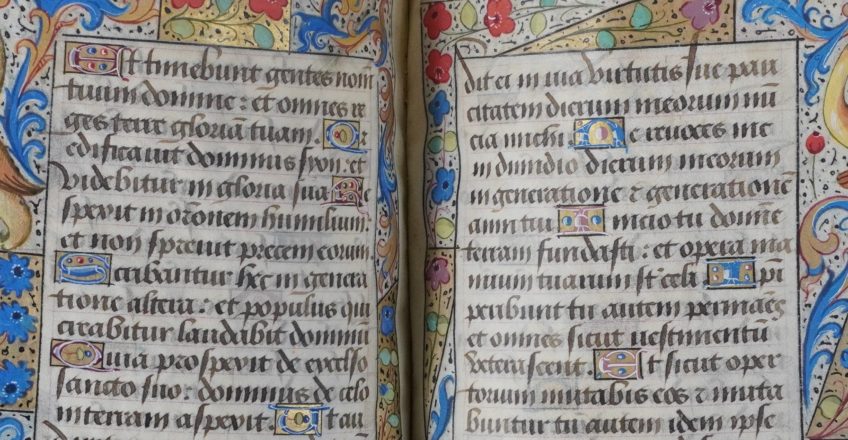 Et timebunt gentes nom
tuum domine : et omnes re
ges terre gloriā tuam. Q
edificauit dominus syon : et
videbitur in gloria sua Re
spexit in orōnem humilium.
et non spreuit precem eorum.
Scribantur hec in genera
tione altera : et populus qui
creabitur laudabit dominū
Quia prospexit de excelso
sancto suo : dominus de celo
in terram aspexit. Ut au
dit ei in uia virtutis sue pau
citatem dierum meorum nū
cia michi Ne reuoces me
in dimidio dierum meorum
in generatione ⁊ generationē
anni tui Inicio tu domīe
terram fundasti : et opera ma
nuum tuarum st celi Ipi
peribunt tu autem permaēs
et omnes sicut uestimentū
veterascent. Et sicut oper
torium mutabis eos ⁊ muta
buntur tu autem idem ipse